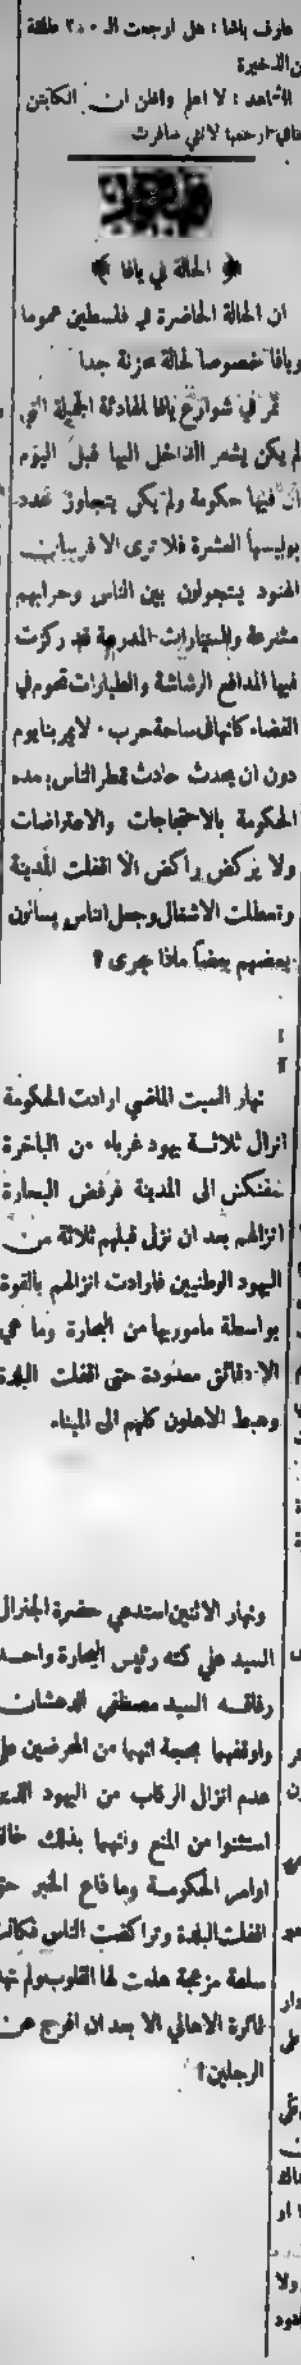 عارف باشا : هل ارجعت الـ ٢٠٠ طلقة
من الذخيرة
الشاهد : لا اعلم واظن ان الكابتن
ارجعها لانني سافرت
﴿ الحالة في يافا ﴾
ان الحالة الحاضرة في فلسطين عموما
ويافا خصوصا لحالة محزنة جدا
تمر في شوارع يافا الهادئة الجميلة التي
لم يكن يشعر الداخل اليها قبل اليوم
ان فيها حكومة ولم يكن يتجاوز عدد
بوليسها العشرة فلا ترى الا فرسان
الهنود يتجولون بين الناس وحرابهم
مشرعة والسيارات المدرعة قد ركزت
فيها المدافع الرشاشة والطيارات تحوم في
الفضاء كانها في ساحة حرب ٠ لا يمر بنا يوم
دون ان يحدث حادث تمطر الناس بعده
الحكومة بالاحتجاجات والاعتراضات
ولا يركض راكض الا اقفلت المدينة
وتعطلت الاشغال وجعل الناس يسألون
بعضهم بعضاً ماذا جرى ؟
نهار السبت الماضي ارادت الحكومة
انزال ثلاثة يهود غرباء من الباخرة
الى المدينة فرفض البحارة
انزالهم بعد ان نزل قبلهم ثلاثة من
اليهود الوطنيين فارادت انزالهم بالقوة
بواسطة مأموريها من البحارة وما هي
الا دقائق معدودة حتى اقفلت البلدة
وهبط الاهلون كلهم الى الميناء
ونهار الاثنين استدعي حضرة الجنرال
السيد علي كته رئيس البحارة واحد
رفاقه السيد مصطفى
واوقفهما بحجة انهما من المحرضين على
عدم انزال الركاب من اليهود الذين
استثنوا من المنع وانهما بذلك
اوامر الحكومة وما ذاع الخبر حتى
اقفلت البلدة وتراكضت الناس فكانت
ساعة مزعجة هلعت لها القلوب ولم تهدأ
ثائرة الاهالي الا بعد ان افرج عن
الرجلين